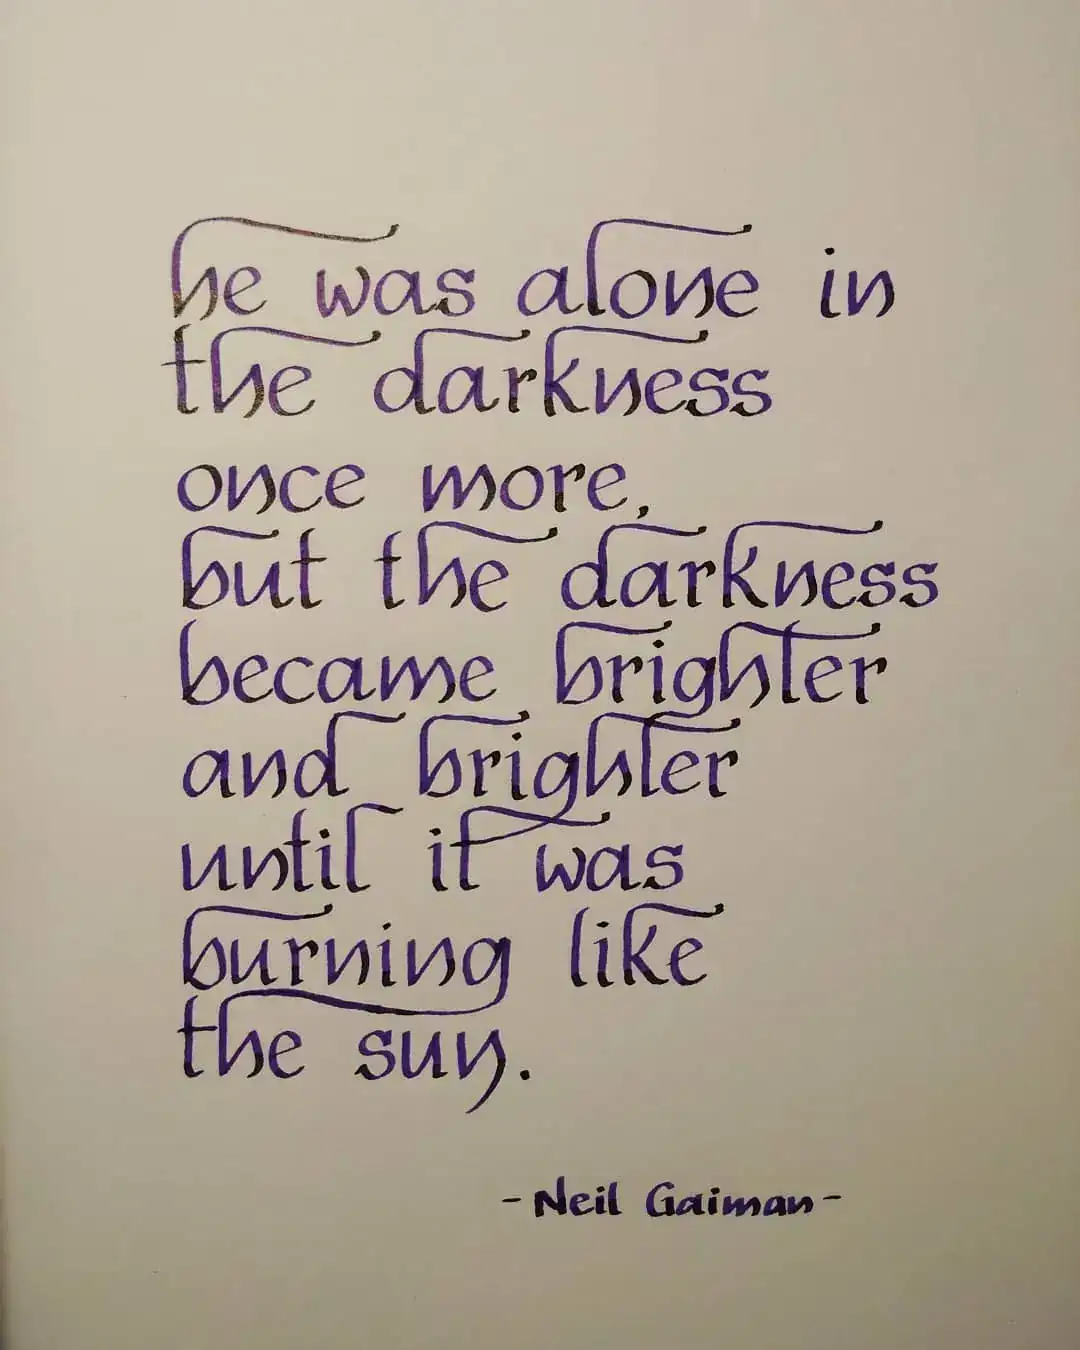 he was alone in
the darkness
once more,
but the darkness
became brighter
and brighter
until it was
burning like
the sun.
-Neil Gaiman-